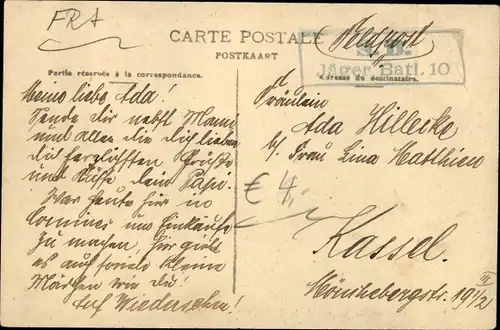 FRA
CARTE POSTALE
POSTKAART
Feldpost
S. B.
Jäger Batl. 10
Partie réservée à la correspondance.
Adresse du destinataire.
Meine liebe Ada!
Sende dir nebst Mama
und Allen die dich lieben
die herzlichsten Grüße
und Küße dein Papi.
War heute hier in
Comines um Einkäufe
zu machen, hier giebt
es auch so viele kleine
Märchen wie du!
Auf Wiedersehn!
Fräulein
Ada Hillecke
b/ Frau Lina Matthieu
€ 4,
Kassel.
Mönchebergstr. 19 1/2